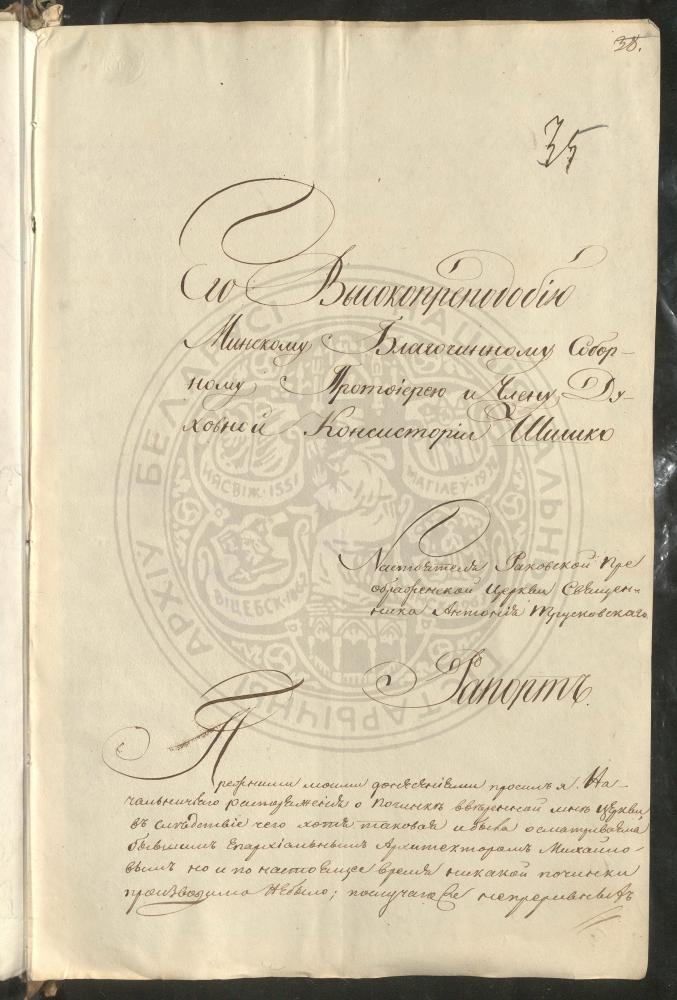 38.
35
Его Высокопреподобію
Минскому Благочинному Собор-
ному Протоіерею и Члену Ду-
ховной Консисторіи Шишко
Настоятеля Раковской Пре
ображенской Церкви Священ-
ника Антонія Трусковскаго
Рапортъ.
Прежними моими донесеніями просилъ я На-
чальничьяго распоряженія о починкѣ ввѣренной мнѣ Церкви,
въ слѣдствіе чего хотя таковая и была осматриваема
бывшимъ Епархіальнымъ Архитекторомъ Михайло-
вымъ но и по настоящее время никакой починки
произведимо небыло; послучаю же непрерывныхъ
АРХІЎ БЕЛАРУСІ НАЦЫЯНАЛЬНЫ
ГІСТАРЫЧНЫ
НЯСВІЖ·1551
МАГІЛЕЎ·19
ВІЦЕБСК·1862